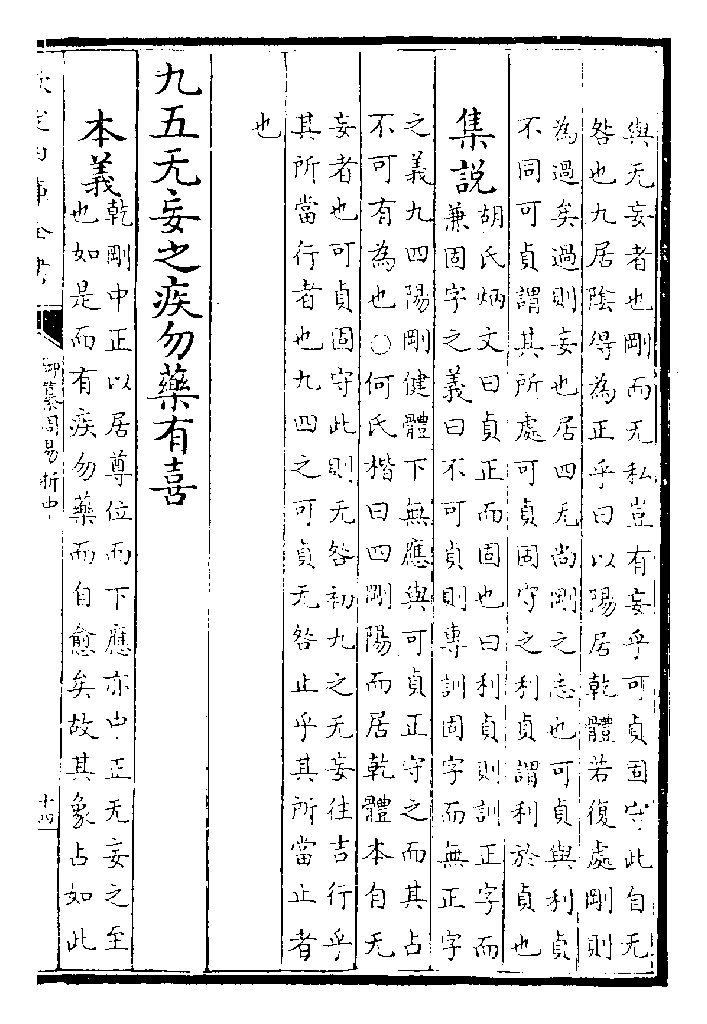 與无妄者也剛而无私豈有妄乎可貞固守此自无
咎也九居陰得為正乎曰以陽居乾體若復處剛則
為過矣過則妄也居四无尚剛之志也可貞與利貞
不同可貞謂其所處可貞固守之利貞謂利於貞也
集說
胡氏炳文曰貞正而固也曰利貞則訓正字而
兼固字之義曰不可貞則專訓固字而無正字
之義九四陽剛健體下無應與可貞正守之而其占
不可有為也○何氏楷曰四剛陽而居乾體本自无
妄者也可貞固守此則无咎初九之无妄往吉行乎
其所當行者也九四之可貞无咎止乎其所當止者
也
九五无妄之疾勿藥有喜
本義
乾剛中正以居尊位而下應亦中正无妄之至
也如是而有疾勿藥而自愈矣故其象占如此
欽定四庫全書
御纂周易折中
十四